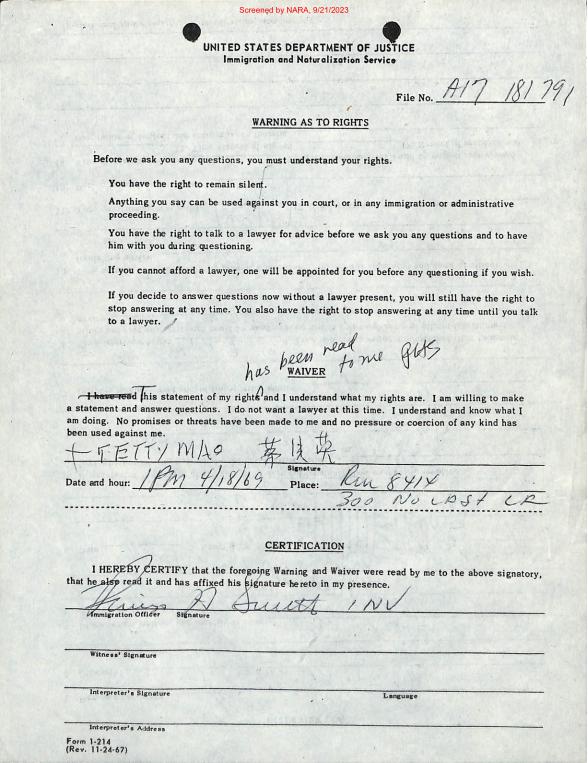 Screened by NARA, 9/21/2023
UNITED STATES DEPARTMENT OF JUSTICE
Immigration and Naturalization Service
File No. A17 181 791
WARNING AS TO RIGHTS
Before we ask you any questions, you must understand your rights.
You have the right to remain silent.
Anything you say can be used against you in court, or in any immigration or administrative
proceeding.
You have the right to talk to a lawyer for advice before we ask you any questions and to have
him with you during questioning.
If you cannot afford a lawyer, one will be appointed for you before any questioning if you wish.
If you decide to answer questions now without a lawyer present, you will still have the right to
stop answering at any time. You also have the right to stop answering at any time until you talk
to a lawyer.
has been read to me
WAIVER
I have read This statement of my rights and I understand what my rights are. I am willing to make
a statement and answer questions. I do not want a lawyer at this time. I understand and know what I
am doing. No promises or threats have been made to me and no pressure or coercion of any kind has
been used against me.
MAO
Signature
Date and hour: 1 PM 4/18/69 Place: Rm 8414
300 No
CERTIFICATION
I HEREBY CERTIFY that the foregoing Warning and Waiver were read by me to the above signatory,
that he also read it and has affixed his signature hereto in my presence.
INV
Immigration Officer Signature
Witness' Signature
Interpreter's Signature Language
Interpreter's Address
Form 1-214
(Rev. 11-24-67)